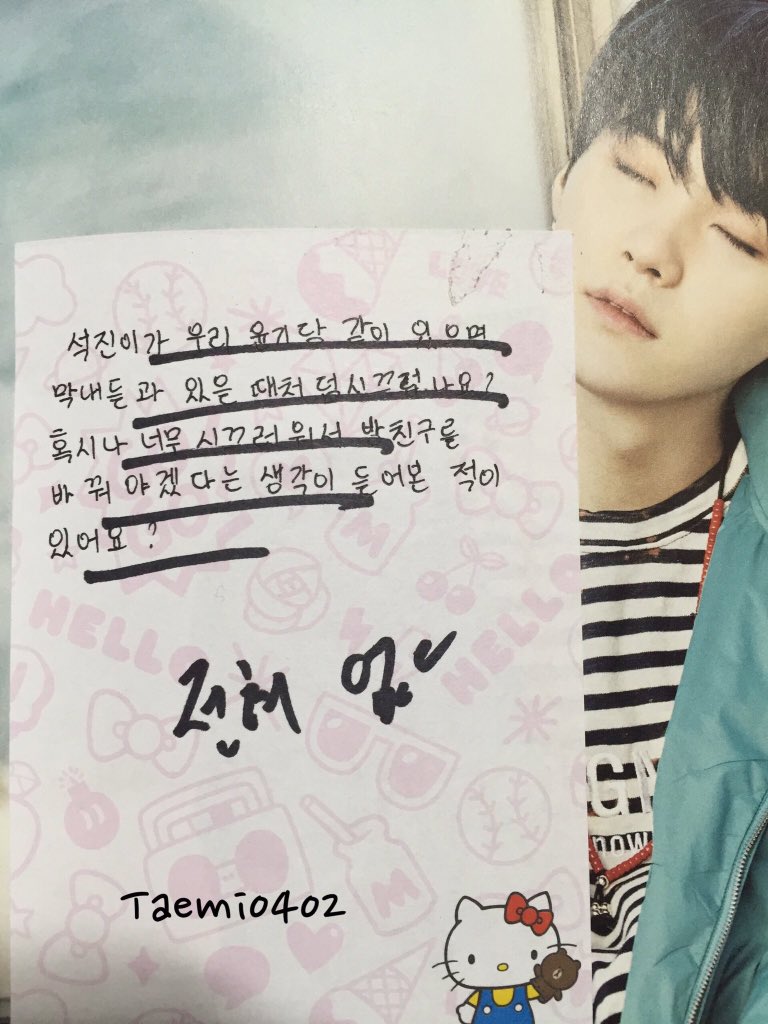 석진이가 우리 윤기랑 같이 있으며
막내들과 있을 때처럼 시끄럽나요?
혹시나 너무 시끄러워서 방친구를
바꿔야겠다는 생각이 들어본 적이
있어요?
전혀 없
Taemi0402
LOVE
HELLO
HELLO
GA
now